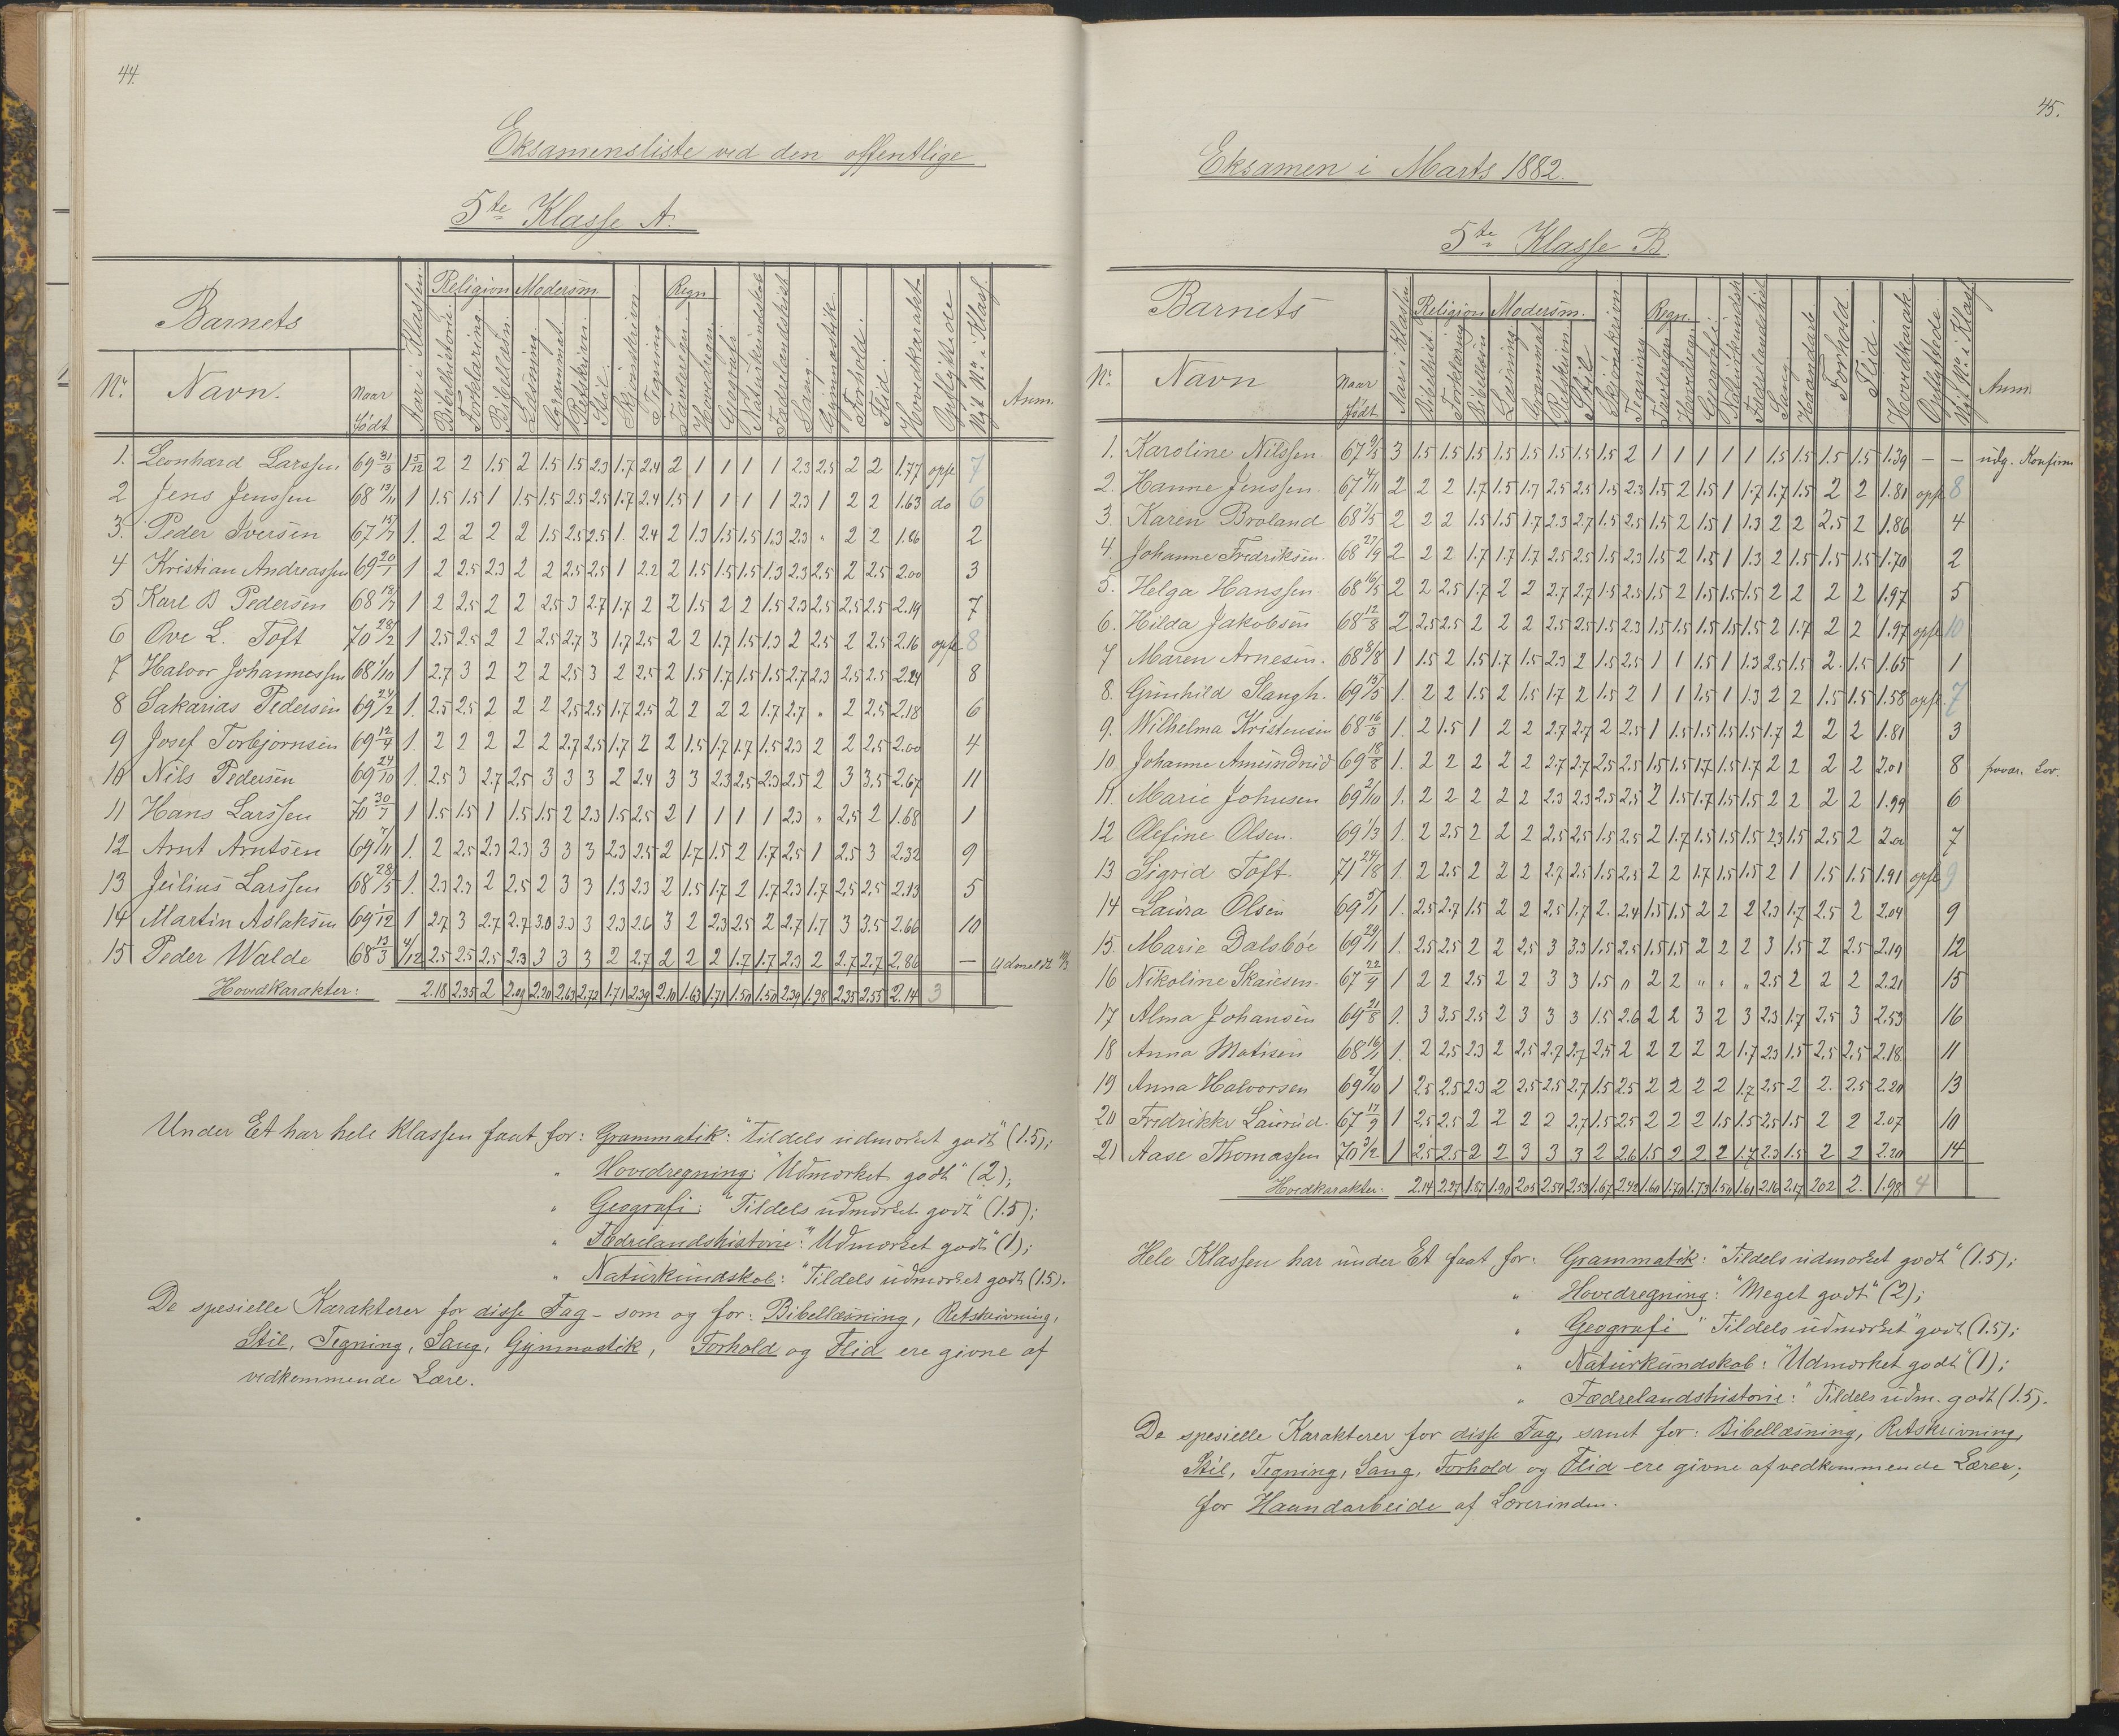 44.
Eksamensliste ved den offentlige
5te Klasse A.
Barnets
Aar i Klassen
Religion
Modersm.
Regn.
Nr.
Navn.
Naar født
Bibelhistorie
Forklaring
Bibellæsn.
Læsning
Grammat.
Retskrivn.
Stil
Skjønskrivn.
Tegning
Tavleregn.
Hovedregn.
Geografi
Naturkundskab
Fædrelandshist.
Sang
Gymnastik
Forhold
Flid
Hovedkarakt.
Opflyttede
Nyt No i Klas.
Anm.
1. Leonhard Larssen 69 31/3 1 5/12 2 2 1.5 2 1.5 1.5 2.3 1.7 2.4 2 1 1 1 1 2.3 2.5 2 2 1.77 opfl 7
2 Jens Jenssen 68 13/11 1 1.5 1.5 1 1.5 1.5 2.5 2.5 1.7 2.4 1.5 1 1 1 1 2.3 1 2 2 1.63 do 6
3. Peder Iversen 67 15/7 1. 2 2 2 2 1.5 2.5 2.5 1. 2.4 2 1.3 1.5 1.5 1.3 2.3 " 2 2 1.86 2
4 Kristian Andreassen 69 20/1 1 2 2.5 2.3 2 2 2.5 2.5 1 2.2 2 1.5 1.5 1.5 1.3 2.3 2.5 2 2.5 2.00 3
5 Karl B Pedersen 68 18/7 1 2 2.5 2 2 2.5 3 2.7 1.7 2 2 1.5 2 2 1.5 2.3 2.5 2.5 2.5 2.19 7
6 Ove L. Toft 70 28/2 1 2.5 2.5 2 2 2.5 2.7 3 1.7 2.5 2 2 1.7 1.5 1.3 2 2.5 2 2.5 2.16 opfl 8
7 Halvor Johannessen 68 1/10 1 2.7 3 2 2 2 2.5 3 2 2.5 2 1.5 1.7 1.5 1.5 2.7 2.3 2.5 2.5 2.24 8
8 Sakarias Pedersen 69 24/2 1. 2.5 2.5 2 2 2 2.5 2.5 1.7 2.5 2 2 2 2 1.7 2.7 " 2 2.5 2.18 6
9 Josef Torbjørnsen 69 12/4 1. 2 2 2 2 2 2.7 2.5 1.7 2 2 1.5 1.7 1.7 1.5 2.3 2 2 2.5 2.00 4
10 Nils Pedersen 69 24/10 1. 2.5 3 2.7 2.5 3 3 3 2 2.4 3 3 2.3 2.5 2.3 2.5 2 3 3.5 2.67 11
11 Hans Larssen 70 30/7 1 1.5 1.5 1 1.5 1.5 2 2.3 1.5 2.5 2 1 1 1 1 2.3 " 2.5 2 1.68 1
12 Arnt Arntsen 69 7/11 1. 2 2.5 2.3 2.3 3 3 3 2.3 2.5 2 1.7 1.5 2 1.7 2.5 1 2.5 3 2.32 9
13 Julius Larssen 68 28/5 1. 2.3 2.3 2 2.5 2 3 3 1.3 2.3 2 1.5 1.7 2 1.7 2.3 1.7 2.5 2.5 2.13 5
14 Martin Aslaksen 69 1/12 1 2.7 3 2.7 2.7 3.0 3.3 3 2.3 2.6 3 2 2.3 2.5 2 2.7 1.7 3 3.5 2.66 10
15 Peder Walde 68 13/3 4/12 2.5 2.5 2.5 2.3 3 3 3 2 2.7 2 2 2 1.7 1.7 2.3 2 2.7 2.7 2.86 — Udmeldt
Hovedkarakter: 2.18 2.35 2 2.09 2.20 2.63 2.72 1.71 2.39 2.10 1.63 1.71 1.50 1.50 2.39 1.98 2.35 2.55 2.14 3
Under Et har hele Klassen faat for: Grammatik: "Tildels udmærket godt" (1.5);
" Hovedregning: "Udmærket godt" (2);
" Geografi: "Tildels udmærket godt" (1.5);
" Fædrelandshistorie: "Udmærket godt" (1);
" Naturkundskab: "Tildels udmærket godt (1.5).
De spesielle Karakterer for disse Fag - som og for: Bibellæsning, Retskrivning,
Stil, Tegning, Sang, Gymnastik, Forhold og Flid ere givne af
vedkommende Lære.
45.
Eksamen i Marts 1882.
5te Klasse B.
Barnets
Aar i Klassen
Religion
Modersm.
Regn.
Nr.
Navn
Naar født
Bibelhist.
Forklaring
Bibellæsn
Læsning
Grammat.
Retskrivn.
Stil
Skjønskrivn
Tegning
Tavleregn
Hovedregn.
Geografi
Naturkundsk.
Fædrelandshist
Sang
Haandarb.
Forhold.
Flid.
Hovedkarak.
Opflyttede
Nyt No i Klas
Anm.
1. Karoline Nilssen 67 9/5 3 1.5 1.5 1.5 1.5 1.5 1.5 1.5 1.5 2 1 1 1 1 1 1.5 1.5 1.5 1.5 1.39 — — udg. Konfirm
2. Hanne Jenssen. 67 4/11 2 2 2 1.7 1.5 1.7 2.5 2.5 1.5 2.3 1.5 2 1.5 1 1.7 1.7 1.5 2 2 1.81 opfl 8
3. Karen Broland 68 7/5 2 2 2 1.5 1.5 1.7 2.3 2.7 1.5 2.5 1.5 2 1.5 1 1.3 2 2 2.5 2 1.86 4
4. Johanne Fredriksen. 68 27/9 2 2 2 1.7 1.7 1.7 2.5 2.5 1.5 2.3 1.5 2 1.5 1 1.3 2 1.5 1.5 1.5 1.70 2
5. Helga Hanssen 68 16/5 2 2 2.5 1.7 2 2 2.7 2.7 1.5 2.5 1.5 2 1.5 1.5 1.5 2 2 2 2 1.97 5
6. Hilda Jakobsen 68 12/3 2 2.5 2.5 2 2 2 2.5 2.5 1.5 2.3 1.5 1.5 1.5 1.5 1.5 2 1.7 2 2 1.97 opfl 10
7 Maren Arnesen. 68 8/8 1 1.5 2 1.5 1.7 1.5 2.3 2 1.5 2.5 1 1 1.5 1 1.3 2.5 1.5 2. 1.5 1.65 1
8. Gunhild Slangh. 69 15/5 1. 2 2 1.5 2 1.5 1.7 2 1.5 2 1 1 1.5 1 1.3 2 2 1.5 1.5 1.58 opfl. 7
9. Wilhelma Kristensen 68 16/3 1. 2 1.5 1 2 2 2.7 2.7 2 2.5 1 1.5 1.5 1.5 1.5 1.7 2 2 2 1.81 3
10. Johanne Amundrud 69 18/8 1. 2 2 2 2 2 2.7 2.7 2.5 2.5 1.5 1.5 1.7 1.5 1.7 2 2 2 2 2.01 8
11. Marie Johnsen 69 2/10 1. 2 2 2 2 2 2.3 2.3 2.5 2.5 2 1.5 1.7 1.5 1.5 2 2 2 2 1.99 6
12 Olefine Olsen. 69 1/3 1. 2 2.5 2 2 2 2.5 2.5 1.5 2.5 2 1.7 1.5 1.5 1.5 2.3 1.5 2.5 2 2.01 7
13 Sigrid Toft. 71 24/8 1. 2 2.5 2 2 2 2.7 2.5 1.5 2.5 2 2 1.7 1.5 1.5 2 1 1.5 1.5 1.91 opfl 9
14 Laura Olsen 69 5/1 1. 2.5 2.7 1.5 2 2 2.5 1.7 2. 2.4 1.5 1.5 2 2 2 2.3 1.7 2.5 2 2.04 9
15. Marie Dalsbøe 69 29/1 1. 2.5 2.5 2 2 2.5 3 3.3 1.5 2.5 1.5 1.5 2 2 2 3 1.5 2 2.5 2.19 12
16 Nikoline Skaiesen. 67 22/9 1 2 2 2.5 2 2 3 3 1.5 " 2 2 " " " 2.5 2 2 2 2.21 15
17 Alma Johansen 69 21/8 1. 3 3.5 2.5 2 3 3 3 1.5 2.6 2 2 3 2 3 2.3 1.7 2.5 3 2.53 16
18 Anna Matisen 68 16/1 1. 2 2.5 2.3 2 2.5 2.7 2.7 2.5 2 2 2 2 2 1.7 2.3 1.5 2.5 2.5 2.18 11
19 Anna Halvorsen 69 2/10 1 2.5 2.5 2.3 2 2.5 2.5 2.7 1.5 2.5 2 2 2 2 1.7 2.5 2 2. 2.5 2.20 13
20 Fredrikke Laurud. 67 17/9 1 2.5 2.5 2 2 2 2 2.7 1.5 2.5 2 2 2 1.5 1.5 2.5 1.5 2 2 2.07 10
21 Aase Thomassen 70 3/2 1 2.5 2.5 2 2 3 3 3 2 2.6 1.5 2 2 2 1.7 2.3 1.5 2 2 2.20 14
Hovedkarakter: 2.14 2.27 1.57 1.90 2.05 2.54 2.53 1.67 2.42 1.60 1.70 1.73 1.50 1.61 2.16 2.17 2.02 2. 1.98 4
Hele Klassen har under Et faat for: Grammatik: "Tildels udmærket godt" (1.5);
" Hovedregning: "Meget godt" (2);
" Geografi "Tildels udmærket" godt (1.5);
" Naturkundskab: "Udmærket godt" (1);
" Fædrelandshistorie: "Tildels udm. godt (1.5).
De spesielle Karakterer for disse Fag, samt for: Bibellæsning, Retskrivning,
Stil, Tegning, Sang, Forhold og Flid ere givne af vedkommende Lærer;
for Haandarbeide af Lærerinden.